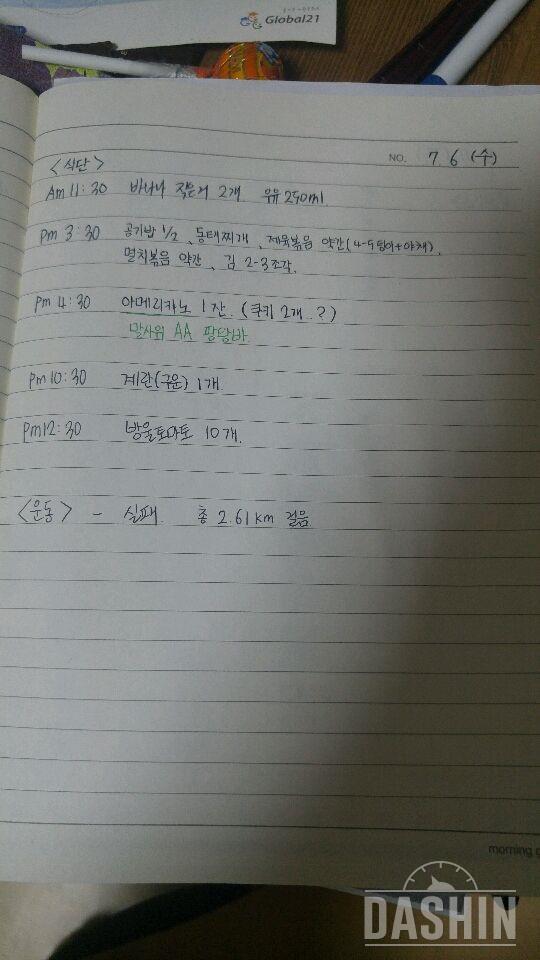 Global21
NO. 7. 6 (수)
<식단>
Am 11:30 바나나 작은거 2개. 우유 250ml.
Pm 3:30 공기밥 1/2, 동태찌개, 제육볶음 약간(4-5덩어+야채).
멸치볶음 약간, 김 2-3조각.
Pm 4:30 아메리카노 1잔. (쿠키 2개..?)
AA
Pm 10:30 계란(구운) 1개
Pm 12:30 방울토마토 10개.
<운동> - 실패. 총 2.61km 걸음
morning
DASHIN